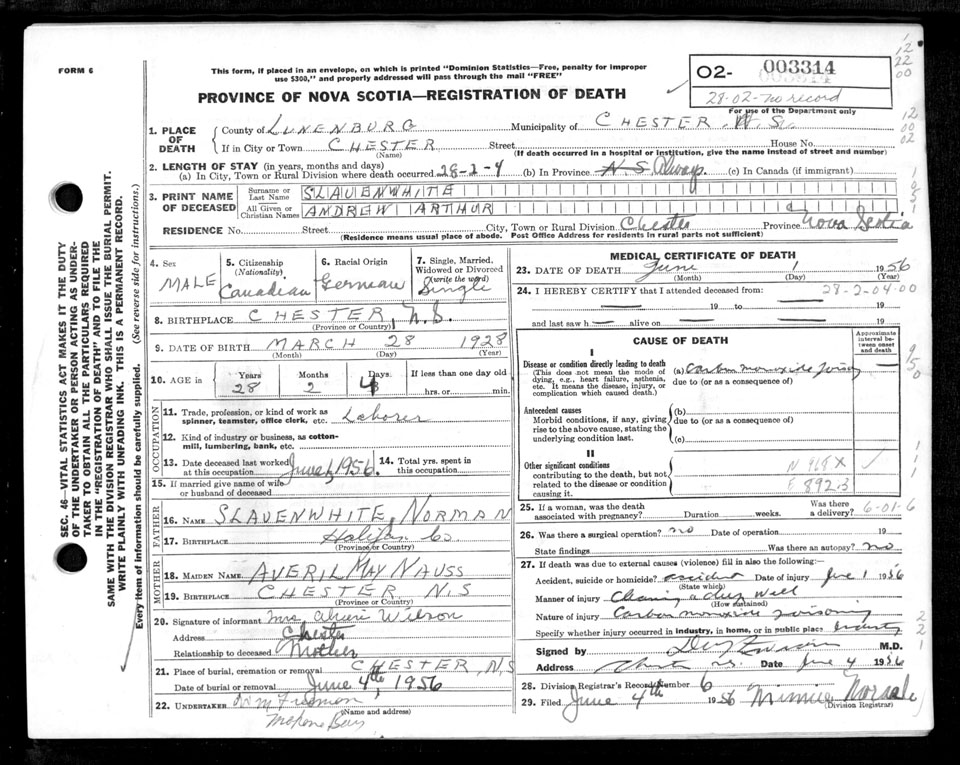 FORM 6
This form, if placed in an envelope, on which is printed "Dominion Statistics—Free, penalty for improper
use $300," and properly addressed will pass through the mail "FREE"
PROVINCE OF NOVA SCOTIA—REGISTRATION OF DEATH
02- 003314
28-02-no record
For use of the Department only
12
22
00
12
00
02
SEC. 46—VITAL STATISTICS ACT MAKES IT THE DUTY
OF THE UNDERTAKER OR PERSON ACTING AS UNDER-
TAKER TO OBTAIN ALL THE PARTICULARS REQUIRED
IN THE "REGISTRATION OF DEATH" AND TO FILE THE
SAME WITH THE DIVISION REGISTRAR WHO SHALL ISSUE THE BURIAL PERMIT.
WRITE PLAINLY WITH UNFADING INK. THIS IS A PERMANENT RECORD.
Every item of information should be carefully supplied. (See reverse side for instructions.)
1. PLACE OF DEATH
County of LUNENBURG Municipality of CHESTER N.S.
If in City or Town CHESTER Street House No.
(Name) (If death occurred in a hospital or institution, give the name instead of street and number)
2. LENGTH OF STAY (in years, months and days)
(a) In City, Town or Rural Division where death occurred 28-2-4 (b) In Province N S Always (c) In Canada (if immigrant)
3. PRINT NAME OF DECEASED
Surname or Last Name SLAUENWHITE
All Given or Christian Names ANDREW ARTHUR
RESIDENCE No. Street City, Town or Rural Division Chester Province Nova Scotia
(Residence means usual place of abode. Post Office Address for residents in rural parts not sufficient)
4. Sex MALE
5. Citizenship (Nationality) Canadian
6. Racial Origin German
7. Single, Married, Widowed or Divorced (write the word) Single
8. BIRTHPLACE CHESTER, N.S.
(Province or Country)
9. DATE OF BIRTH MARCH 28 1928
(Month) (Day) (Year)
10. AGE in Years 28 Months 2 Days 4 If less than one day old
hrs. or min.
OCCUPATION
11. Trade, profession, or kind of work as
spinner, teamster, office clerk, etc. Laborer
12. Kind of industry or business, as cotton-
mill, lumbering, bank, etc.
13. Date deceased last worked at this occupation June 1, 1956
14. Total yrs. spent in this occupation
15. If married give name of wife
or husband of deceased
FATHER
16. NAME SLAUENWHITE, NORMAN
17. BIRTHPLACE Halifax Co
(Province or Country)
MOTHER
18. MAIDEN NAME AVERIL MAY NAUSS
19. BIRTHPLACE CHESTER, N.S
(Province or Country)
20. Signature of informant Mrs Wilson
Address Chester
Relationship to deceased Mother
21. Place of burial, cremation or removal CHESTER, N.S
Date of burial or removal June 4th, 1956
22. UNDERTAKER
(Name and address)
MEDICAL CERTIFICATE OF DEATH
23. DATE OF DEATH June 1 1956
(Month) (Day) (Year)
24. I HEREBY CERTIFY that I attended deceased from: 28-2-04-00
19 to 19
and last saw h alive on 19
CAUSE OF DEATH
Approximate interval between onset and death
I
Disease or condition directly leading to death
(This does not mean the mode of
dying, e.g., heart failure, asthenia,
etc. It means the disease, injury, or
complication which caused death.)
(a) Carbon monoxide poisoning
due to (or as a consequence of)
Antecedent causes
Morbid conditions, if any, giving
rise to the above cause, stating the
underlying condition last.
(b)
due to (or as a consequence of)
(c)
II
Other significant conditions
contributing to the death, but not
related to the disease or condition
causing it.
N 968 X
E 892.3
25. If a woman, was the death
associated with pregnancy? Duration weeks. Was there a delivery? 6-01-6
26. Was there a surgical operation? no Date of operation 19
State findings Was there an autopsy? no
27. If death was due to external causes (violence) fill in also the following:
Accident, suicide or homicide? accident Date of injury June 1 1956
(State which)
Manner of injury Cleaning a dug Well
(How sustained)
Nature of injury Carbon monoxide poisoning
Specify whether injury occurred in industry, in home, or in public place Industry
Signed by M.D.
Address Chester N.S. Date June 4 1956
28. Division Registrar's Record Number 6
29. Filed June 4th 1956 Minnie
(Division Registrar)